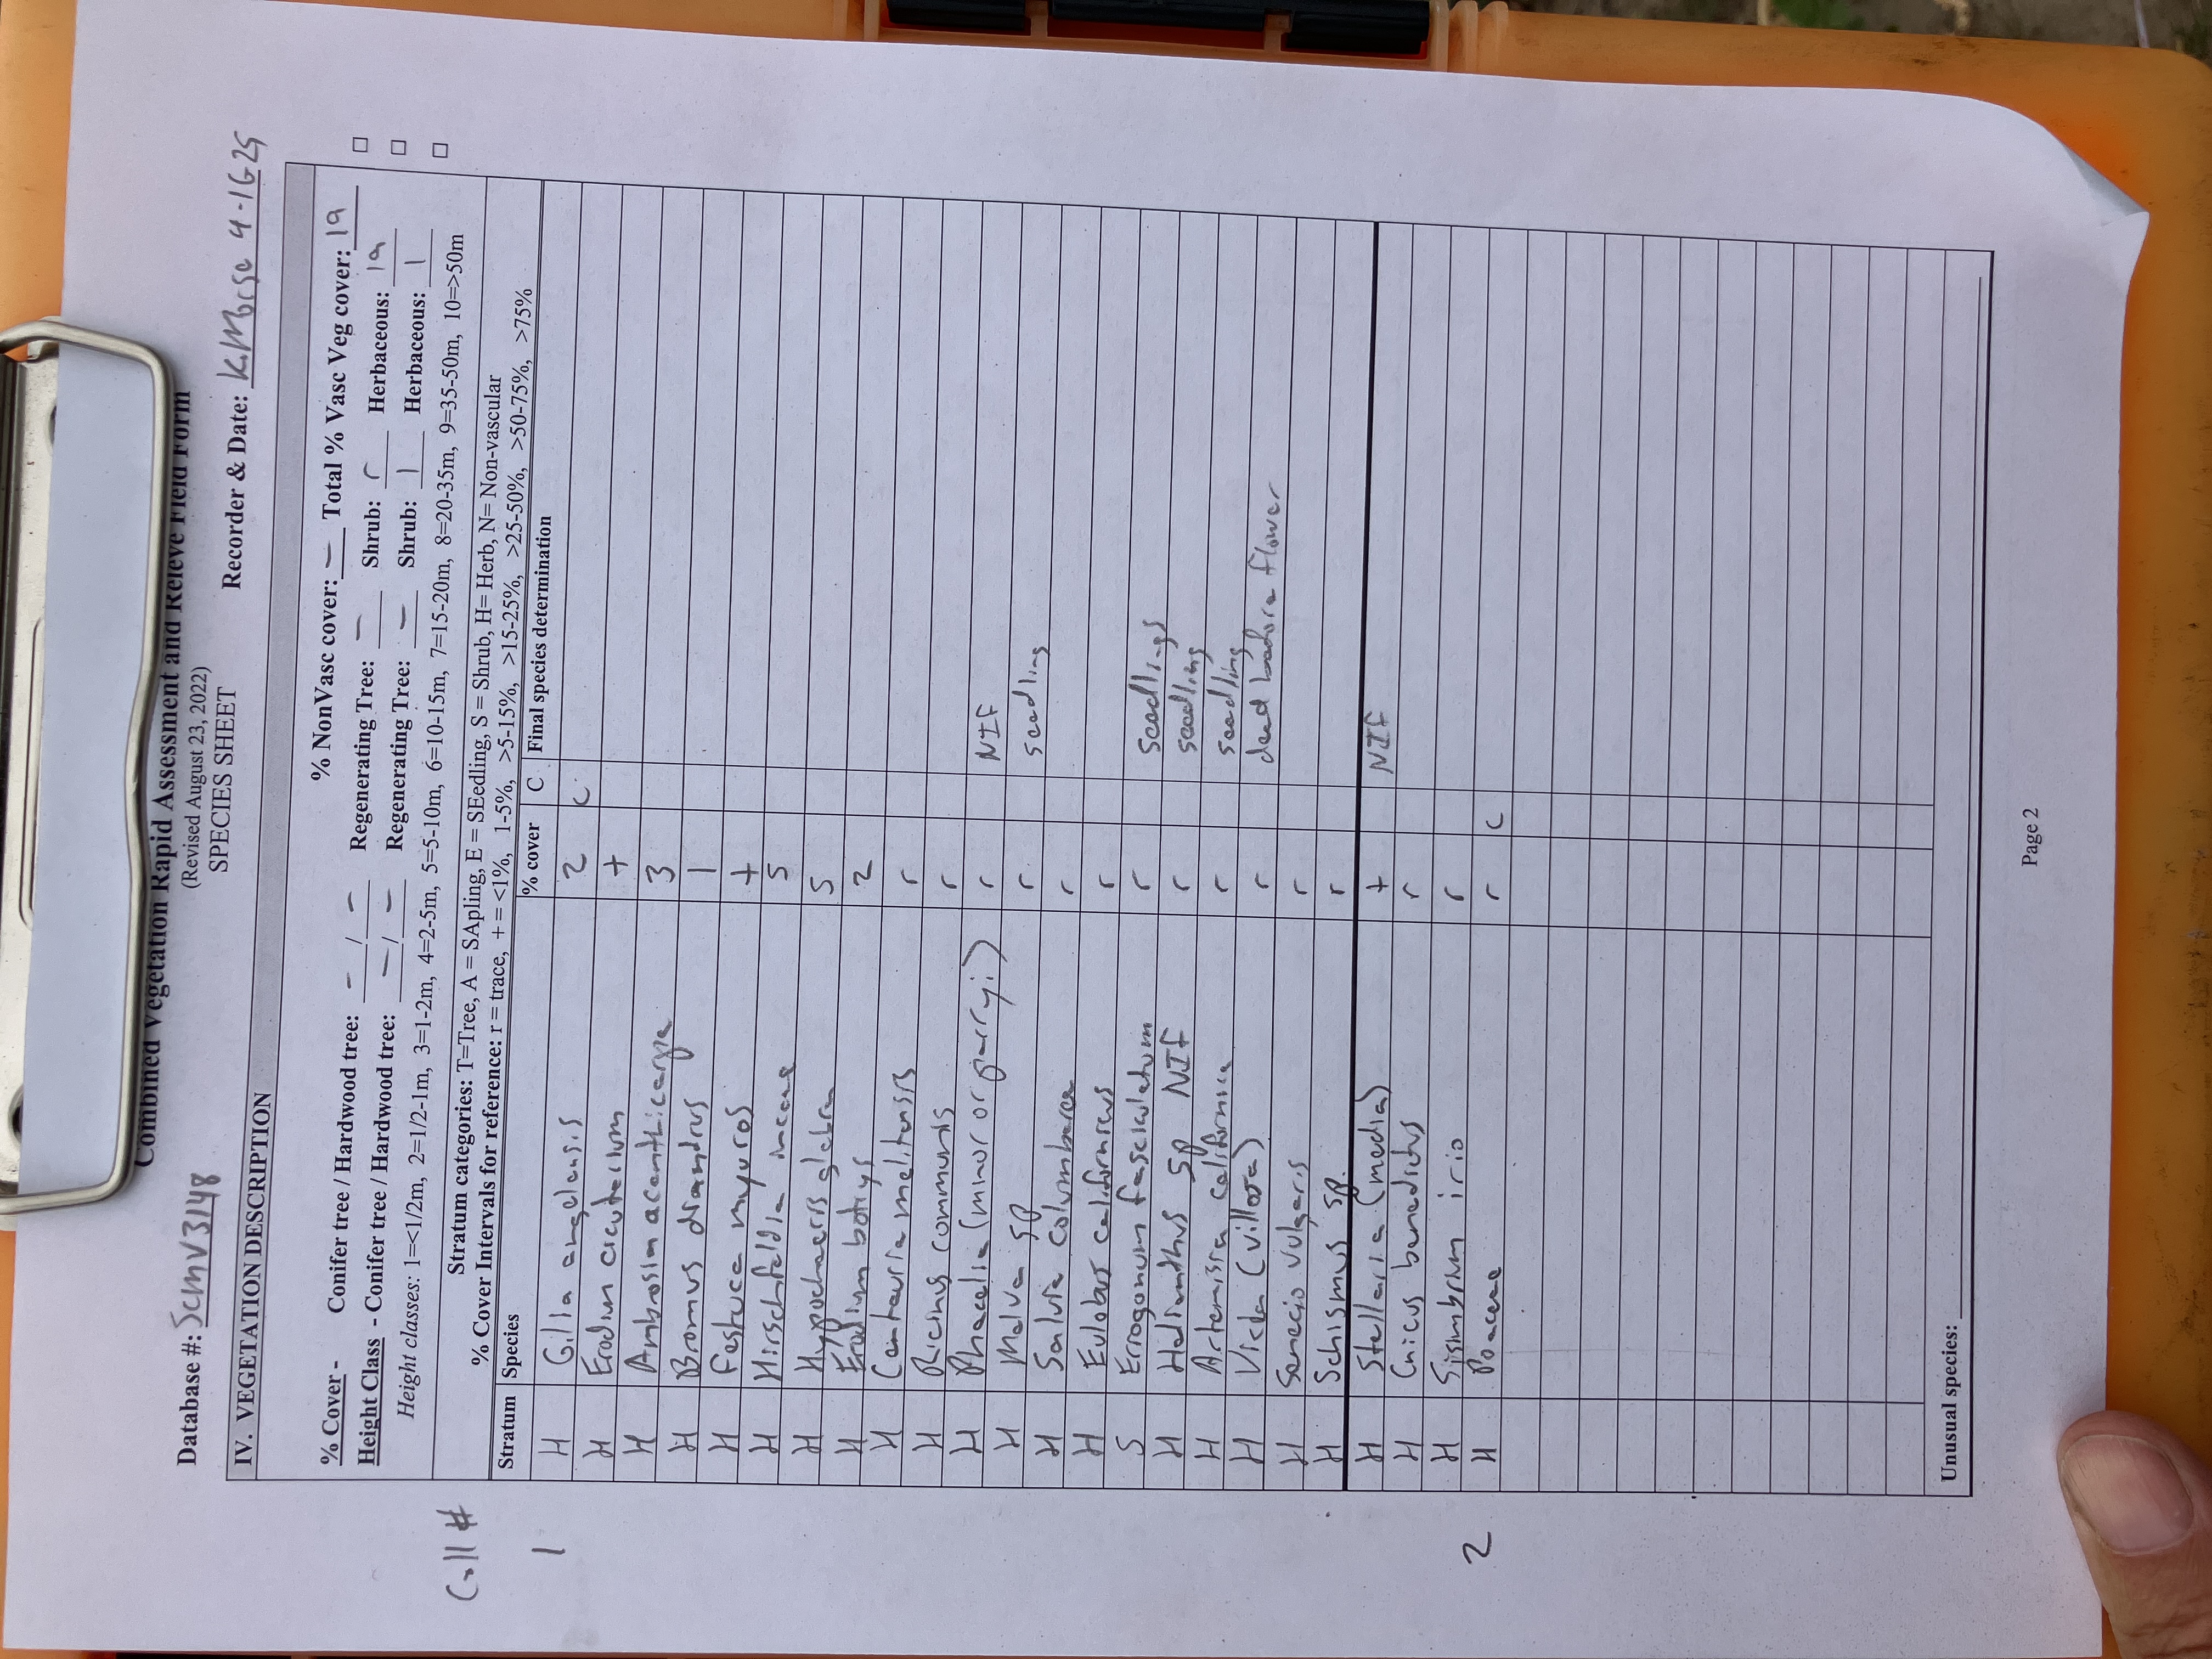 Combined Vegetation Rapid Assessment and Relevé Field Form
(Revised August 23, 2022)
SPECIES SHEET
Database #: SCMV3148 Recorder & Date: K.Morse 4-16-25
IV. VEGETATION DESCRIPTION
% NonVasc cover: – Total % Vasc Veg cover: 19
% Cover - Conifer tree / Hardwood tree: – / – Regenerating Tree: – Shrub: r Herbaceous: 19 □
Height Class - Conifer tree / Hardwood tree: – / – Regenerating Tree: – Shrub: 1 Herbaceous: 1 □
Height classes: 1=<1/2m, 2=1/2-1m, 3=1-2m, 4=2-5m, 5=5-10m, 6=10-15m, 7=15-20m, 8=20-35m, 9=35-50m, 10=>50m □
Coll #
Stratum categories: T=Tree, A = SApling, E = SEedling, S = Shrub, H= Herb, N= Non-vascular
% Cover Intervals for reference: r = trace, + = <1%, 1-5%, >5-15%, >15-25%, >25-50%, >50-75%, >75%
Stratum Species % cover C Final species determination
1 H Gilia angelensis 2 C
H Erodium cicutarium +
H Ambrosia acanthicarpa 3
H Bromus diandrus 1
H Festuca myuros +
H Hirschfeldia incana 5
H Hypochaeris glabra 5
H Erodium botrys 2
H Centauria melitensis r
H Ricinus communis r
H Phacelia (minor or parryi) r NIF
H Malva sp r seedling
H Salvia columbarea r
H Eulobus californicus r
S Erriogonum fasciculatum r seedlings
H Helianthus sp NIF r seedling
H Artemisia californica r seedling
H Vicia (villosa) r dead before flower
H Senecio vulgaris r
H Schismus sp. r
H Stellaria (media) + NIF
H Cnicus benedictus r
H Sisimbrium irio r
2 H Poaceae r C
Unusual species:
Page 2